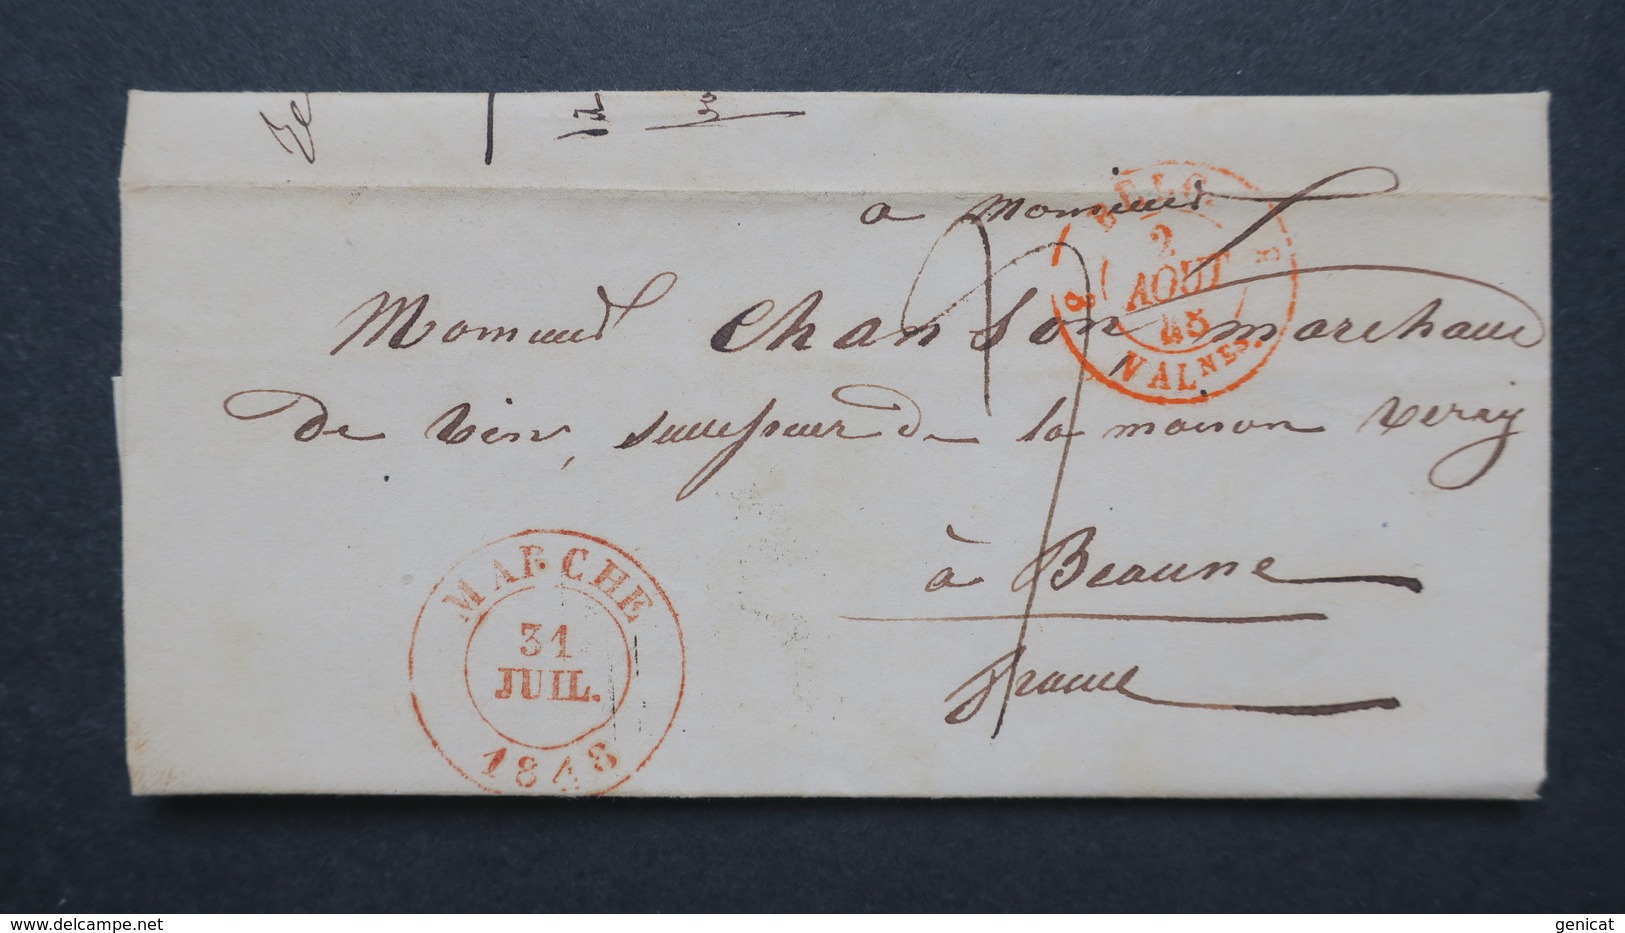 Ze
12
3
a Monsieur
Monsieur Chanson marchand
de vin, successeur de la maison Veray
à Beaune
france
BELG.
2
AOUT
48
VALNES.
MARCHE
31
JUIL.
1848
genicat